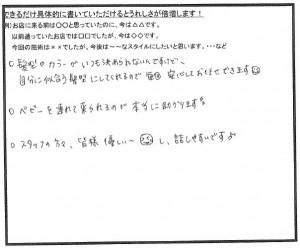 できるだけ具体的に書いていただけるとうれしさが倍増します！
例)お店に来る前は〇〇と思っていたのに、今は△△です。
以前通っていたお店では□□でしたが、今は◇◇です。
今回の施術は××でしたが、今後は～～なスタイルにしたいと思います。…など
○ 髪型やカラーがいつも決められないんですけど、
自分に似合う髪型にしてくれるので毎回安心しておまかせできます
○ ベビーを連れて来られるのが本当に助かります
○ スタッフの方々、皆様優しい～し、話しやすいですよ